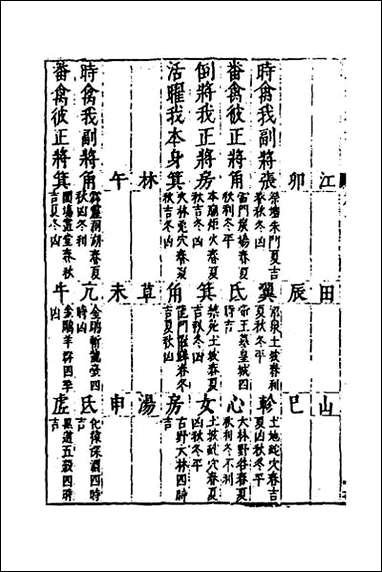 江 田 山
卯 辰 巳
時禽我副將張 朱門夏吉春秋冬凶 翼 泉土坡春利夏秋冬平 軫 土地蛇穴春吉夏凶秋冬平
番禽彼正將角 雷門廣場春夏秋利冬平 氐 帝王墓皇城四時吉 心 大林野巷春夏秋利冬不利
倒將我正將房 本廟炬火春夏秋吉冬凶 箕 土坡春夏吉秋冬凶 女 土坡穴春夏凶秋冬平
活曜我本身箕 大林兎穴春夏秋吉冬凶 角 門春冬吉夏秋凶 房 古野大林四時吉
林 草 湯
午 未 申
時禽我副將角 霹靂洞湖春夏秋凶冬利 亢 金斬龍臺四時凶 氐 化深潭四時吉
番禽彼正將箕 園場叢堂春秋吉夏冬凶 牛 金羊群四季凶 虛 道五穀四時吉